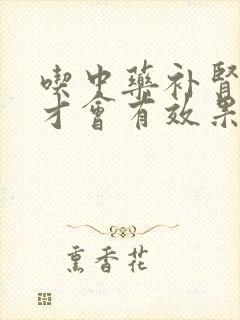 喫中藥补腎
才會有效果
熏香花